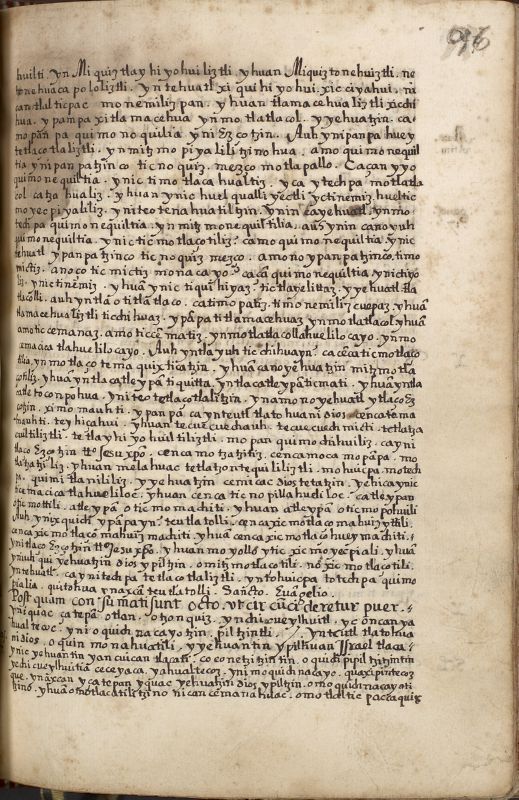 96
huilti. yn Miquiz tlayhiyohuiliztli. yhuan Miquiztonehuiztli. ne
tonehuaca pololiztli. yn tehuatl xi quihiyohui. xicciyahui. ni
can tlalticpac monemiliz pan. yhuan tlamacehualiztli xicchi
hua. ypanpa xitlamacehua yn motlatlacol. yyehuatzin. ca
mo pan pa quimonequiltia yni Ezçotzin. Auh yni panpa huey
tetlaçotlaliztli. yn mitzmopiyalilitzinohua. amo quimonequil
tia yni panpatzinco ticnoquiz. mezço motlapallo. Caçan yyo
quimonequiltia. ynic timotlacahualtiz. yca ytechpa motlatla
col catzahualiz. yhuan ynic huel qualli yectli yctinemiz. hueltic
mopiyaliliz. yniteotenahuatiltzin. ynin ca yehuatl. yn mo
techpa quimonequiltia. yn mitzmonequiltilia. auh ynin canoyuh
quimonequiltia. ynic ticmotlaçotiliz. camo quimonequiltia ynic
tehuatl ypanpatzinco ticnoquiz mezço. amo no ypanpatzinco. timo
mictiz. anoço ticmictiz monacayo. çaca quimonequiltia ynictiyo
liz. ynictinemiz. yhuan ynic tiquihiyaz. tictlayelittaz. yyehuatl tla
tlacolli. auh yntla otitlatlaco. catimopatiz. timonemilizcuepaz. yhuan
tlamacehualiztli ticchihuaz. ypanpa titlamacehuaz yn motlatlacol yhuan
amo ticcemanaz. amo ticcematiz. yn motlatlacollahuelilocayo. yn mo
tlahuelilocayo. Auh yntla yuh ticchihuayn. ca cenca ticmotlaço
tilia. yn motlaçotemaquixticatzin. yhuan cano yehuatzin mitzmotla
çotiliz. yhuan yntla catle ypan tiquitta. yntla catle ypan ticmati. yhuan yntla
yn amo no yehuatl ytlaço Ez
çotzin. ximomauhti. ypanpa ca ynteutl tlatohuani Dios. cenca tema
mauhti. teyhiçahui. yhuan tecuecuechauh. tecuecuechmicti. tetlatza
cuiltiliztli. tetlayhiyohuiltiliztli. mopan quimochihuiliz. ca yni
tlaço Ezçotzin tto Jesu xpo. cenca motzatzitiz. cenca moca mopanpa. mo
tlatzatziliz. yhuan melahuac tetlatzontequililiztli. mohuicpa motech
pa. quimitlaniliz. yyehuatzin cemicac Dios tetatzin. ychica ynic
ticmacica tlahueliloc. yhuan cenca ticnopillahueliloc. catle ypan
oticmottili. atle ypan oticmomachiti. yhuan atle ypan oticmopohuili
Auh ynixquich ypanpayn. teutlatolli. cenca xicmotlaçomahuizittili.
cenca xicmotlaçomahuizmachiti. yhuan cenca xicmotlaçohueymachiti.
ynitlaço Ezçotzin tto Jesu xpo. yhuan moyollo ytic xicmoyecpiali. yhuan
ynyuhqui yehuatzin Dios ypiltzin. omitzmotlaçotili. no xicmotlaçotili.
yntehuatl. ca yni techpa tetlaçotlaliztli. yntohuicpa totechpa quimo
pialia. quitohua ynaxcan teutlatolli. Sancto. Euangelio.
Postquam consumati sunt octo. vt circuncideretur puer.
yniquac çatepan otlan. otzonquiz. ynchicueylhuitl. yc oncan ya
hualtecoc. yni oquichnacayotzin. piltzintli. ynteutl tlatohua
ni Dios. oquinmonahuatili. yyehuantin ypilhuan Israel tlaca.
ynic yehuantin yancuican tlacati. coconetzitzintin. oquichpipiltzitzintin
ychicueylhuitica ceceyaca. yahualtecoz. ynimoquichnacayo. quaxipintecoz
que. ynaxcan yçatepan yquac yehuatzin Dios ypiltzin. omoquichnacayoti
tzino. yhuan omotlacatilitzino nican cemanahuac. omotlalticpacaquix